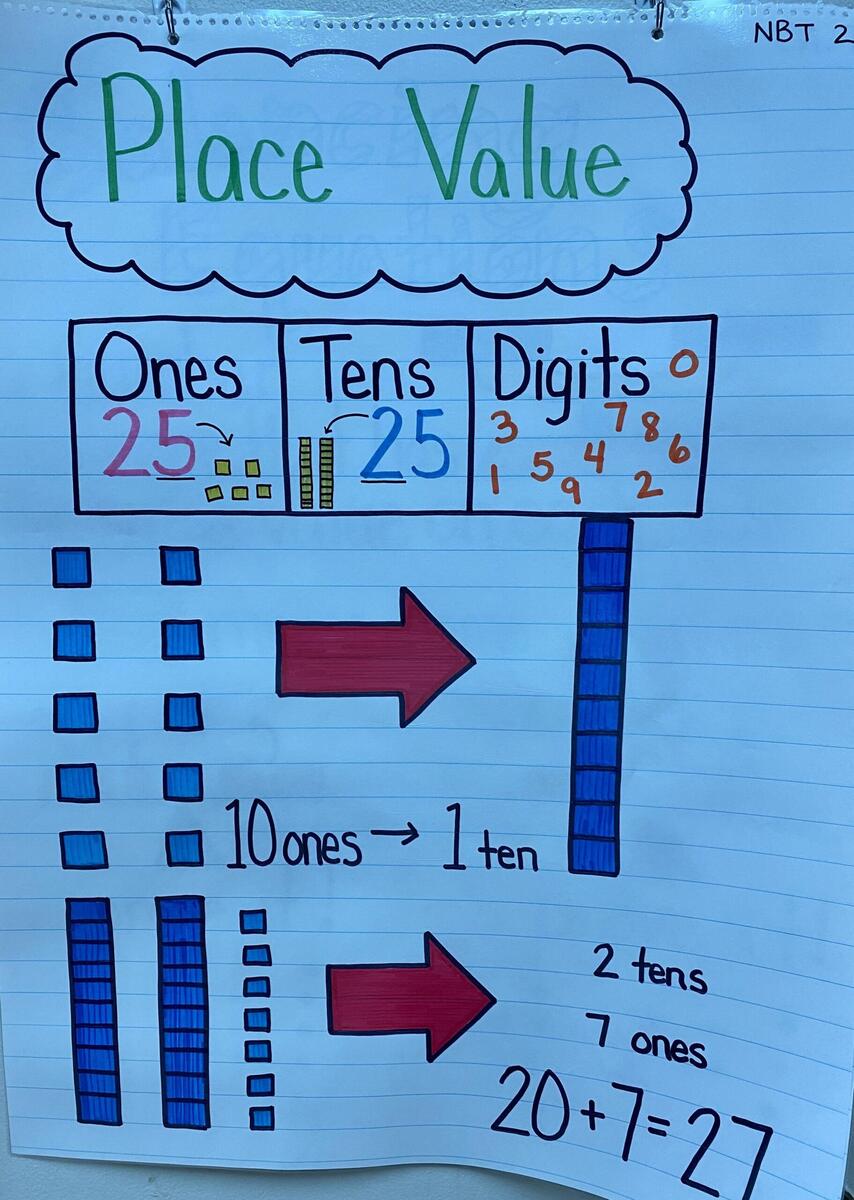 NBT 2
Place Value
Ones Tens Digits 0
25 25 3 7 8
1 5 9 4 2 6
10 ones → 1 ten
2 tens
7 ones
20+7=27